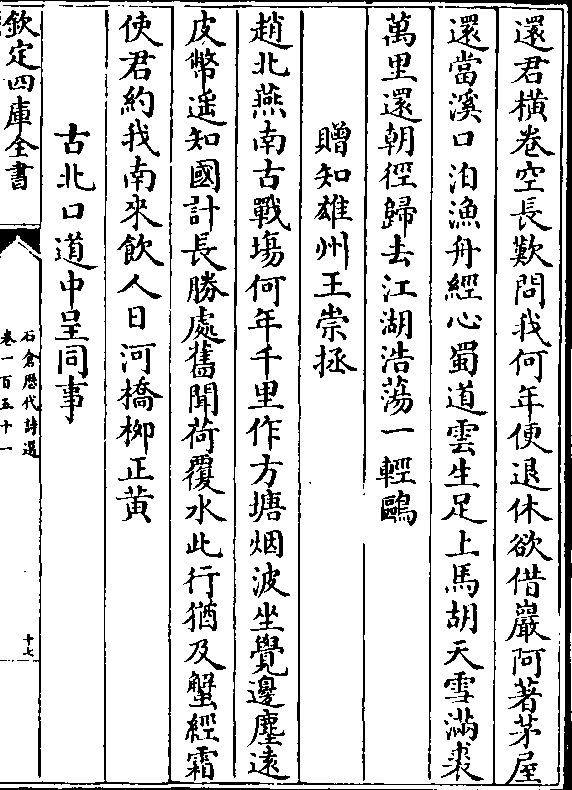 還君橫卷空長歎問我何年便退休欲借巖阿著茅屋
還當溪口泊漁舟經心蜀道雲生足上馬胡天雪滿裘
萬里還朝徑歸去江湖浩蕩一輕鷗
贈知雄州王崇拯
趙北燕南古戰塲何年千里作方塘烟波坐覺邊塵逺
皮幣遥知國計長勝處舊聞荷覆水此行猶及蟹經霜
使君約我南來飲人日河橋桺正黃
古北口道中呈同事
欽定四庫全書
石倉歷代詩選
卷一百五十一
十七